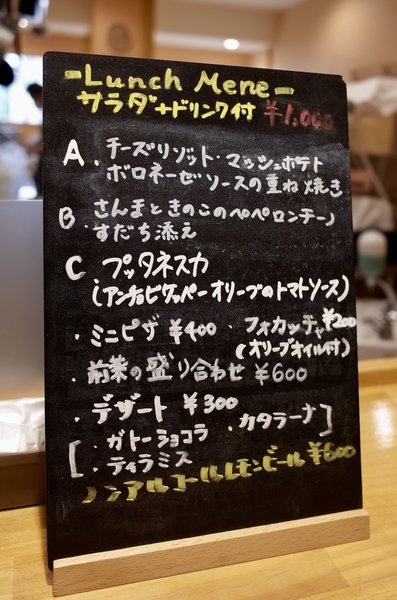 -Lunch Mene-
サラダ+ドリンク付 ¥1,000
A. チーズリゾット・マッシュポテト
ボロネーゼソースの重ね焼き
B. さんまときのこのペペロンチーノ
すだち添え
C プッタネスカ
(アンチョビケッパーオリーブのトマトソース)
・ミニピザ ¥400 ・フォカッチャ¥200
(オリーブオイル付)
・前菜の盛り合わせ ¥600
・デザート ¥300
[・ガトーショコラ ・カタラーナ]
・ティラミス
ノンアルコールレモンビール ¥600